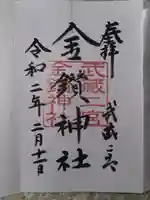 奉拝 武蔵二宮
金鑚神社
令和二年二月十一日
武蔵二宮
金鑚神社